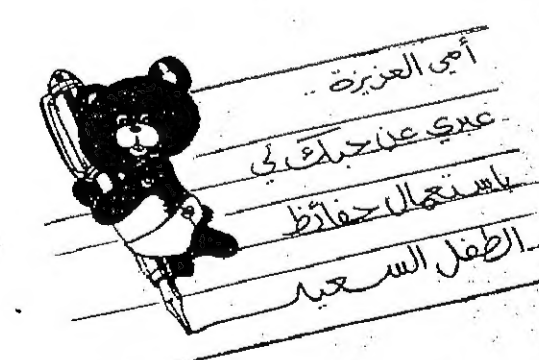 أمي العزيزة ..
عبري عن حبك لي
باستعمال حفائظ
الطفل السعيد